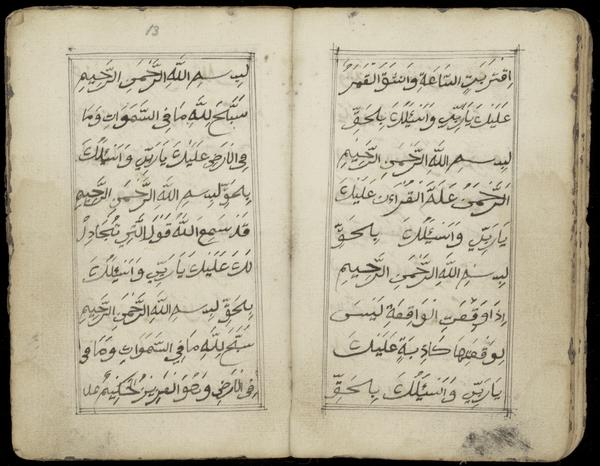 اِقْتَرَبَتِ السَّاعَةُ وَانْشَقَّ الْقَمَرُ
عَلَيْكَ يَارَبِّي وَاَسْئَلُكَ بِالْحَقِّ
بِسْــــمِ اللَّهِ الرَّحْمٰنِ الرَّحِيْمِ
اَلرَّحْمٰنُ عَلَّمَ الْقُرْءَانَ عَلَيْكَ
يَارَبِّي وَاَسْئَلُكَ بِالْحَقِّ
بِسْــمِ اللَّهِ الرَّحْمٰنِ الرَّحِيْمِ
اِذَا وَقَعَتِ الْوَاقِعَةُ لَيْسَ
لِوَقْعَتِهَا كَاذِبَةٌ عَلَيْكَ
يَارَبِّي وَاَسْئَلُكَ بِالْحَقِّ
13
بِسْــــمِ اللَّهِ الرَّحْمٰنِ الرَّحِيْمِ
سَبَّحَ لِلَّهِ مَا فِي السَّمَوَاتِ وَمَا
فِي الْاَرْضِ عَلَيْكَ يَارَبِّي وَاَسْئَلُكَ
بِالْحَقِّ بِسْــمِ اللَّهِ الرَّحْمٰنِ الرَّحِيْمِ
قَدْ سَمِعَ اللَّهُ قَوْلَ الَّتِي تُجَادِلُ
لَكَ عَلَيْكَ يَارَبِّي وَاَسْئَلُكَ
بِالْحَقِّ بِسْــمِ اللَّهِ الرَّحْمٰنِ الرَّحِيْمِ
سَبَّحَ لِلَّهِ مَا فِي السَّمَوَاتِ وَمَا فِي
فِي الْاَرْضِ وَهُوَ الْعَزِيْزُ الْحَكِيْمُ